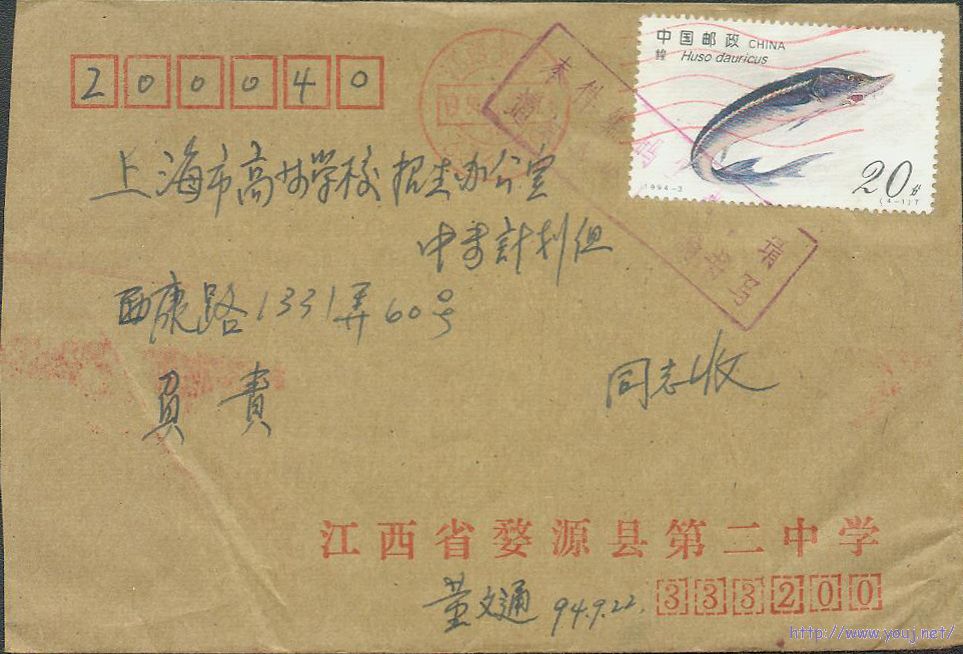 200040
中国邮政 CHINA
鳇 Huso dauricus
1994-3
20分
(4-1)T
上海市高等学校招生办公室
中考計划组
西康路1331弄60号
負責 同志收
江西省婺源县第二中学
董文通 94.9.22.
333200
http://www.youj.net/